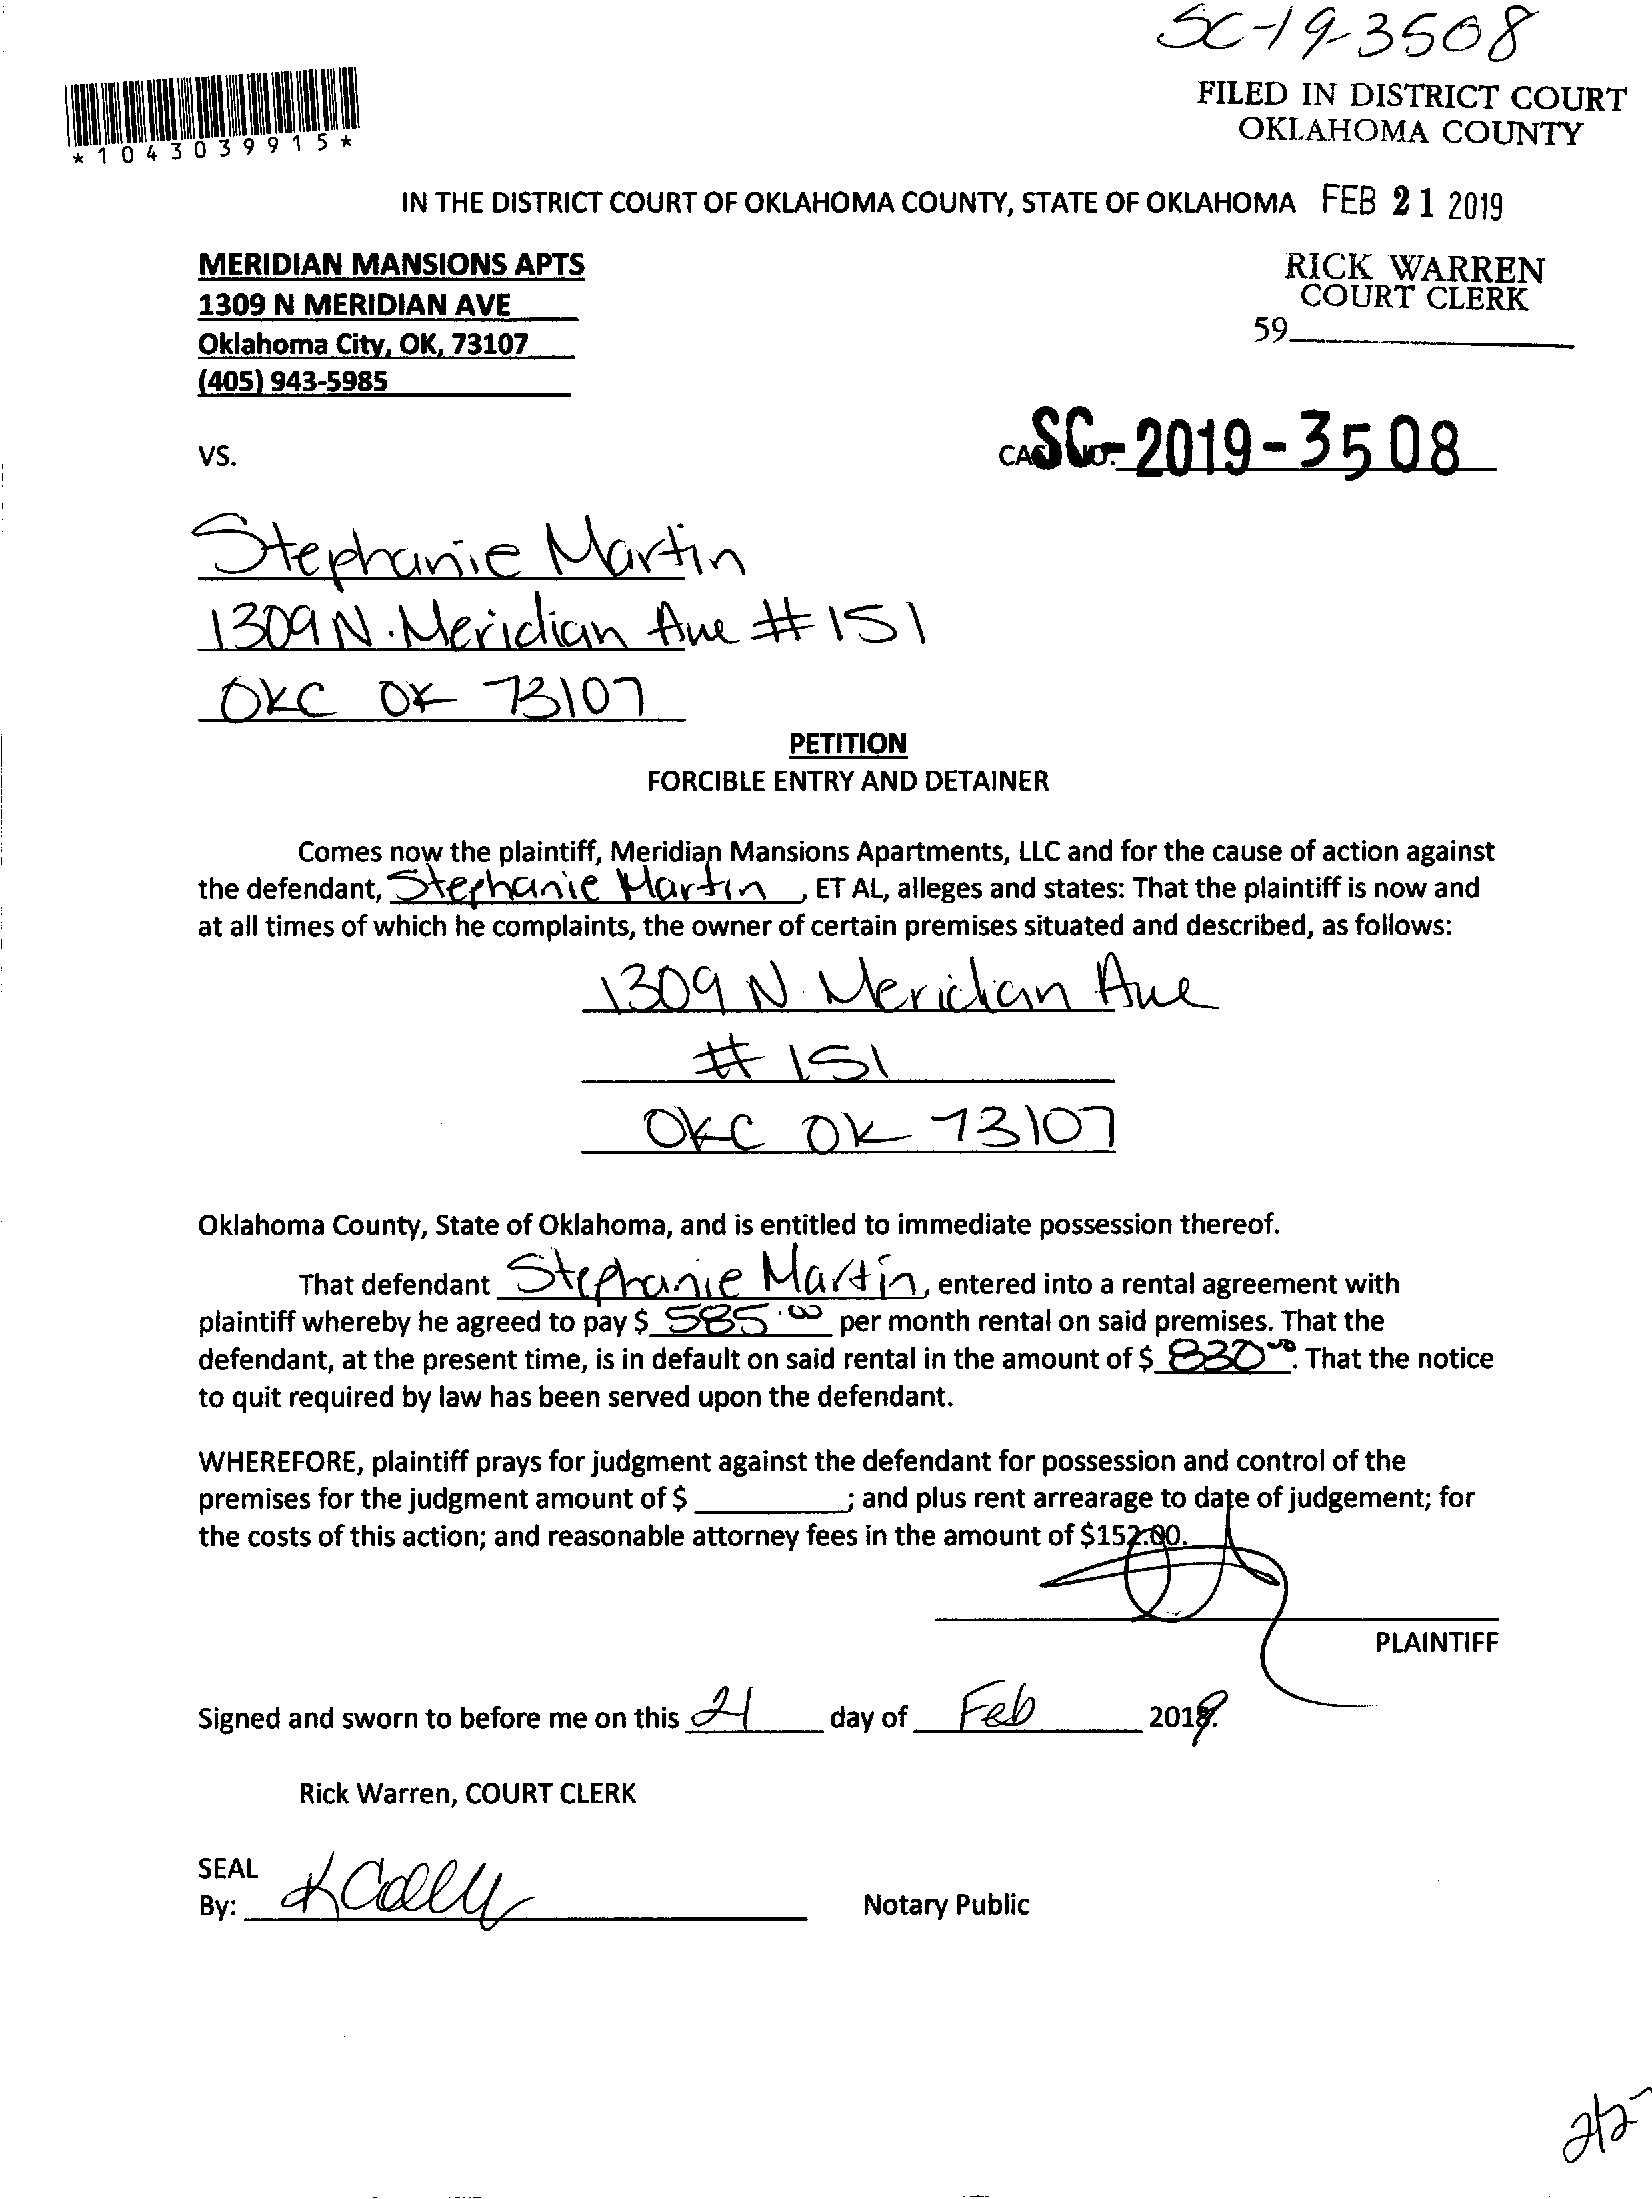 SC-19-3508
FILED IN DISTRICT COURT
OKLAHOMA COUNTY
*1043039915*
IN THE DISTRICT COURT OF OKLAHOMA COUNTY, STATE OF OKLAHOMA FEB 21 2019
MERIDIAN MANSIONS APTS
RICK WARREN
COURT CLERK
1309 N MERIDIAN AVE
59
Oklahoma City, OK, 73107
(405) 943-5985
VS.
SC-2019-3508
Stephanie Martin
1309 N. Meridian Ave #151
OKC OK 73107
PETITION
FORCIBLE ENTRY AND DETAINER
Comes now the plaintiff, Meridian Mansions Apartments, LLC and for the cause of action against
the defendant, Stephanie Martin, ET AL, alleges and states: That the plaintiff is now and
at all times of which he complaints, the owner of certain premises situated and described, as follows:
1309 N. Meridian Ave
# 151
OKC OK 73107
Oklahoma County, State of Oklahoma, and is entitled to immediate possession thereof.
That defendant Stephanie Martin, entered into a rental agreement with
plaintiff whereby he agreed to pay $ 585.00 per month rental on said premises. That the
defendant, at the present time, is in default on said rental in the amount of $ 830.00. That the notice
to quit required by law has been served upon the defendant.
WHEREFORE, plaintiff prays for judgment against the defendant for possession and control of the
premises for the judgment amount of $ ; and plus rent arrearage to date of judgement; for
the costs of this action; and reasonable attorney fees in the amount of $152.00.
PLAINTIFF
Signed and sworn to before me on this 21 day of Feb 2019.
Rick Warren, COURT CLERK
SEAL
By: Notary Public